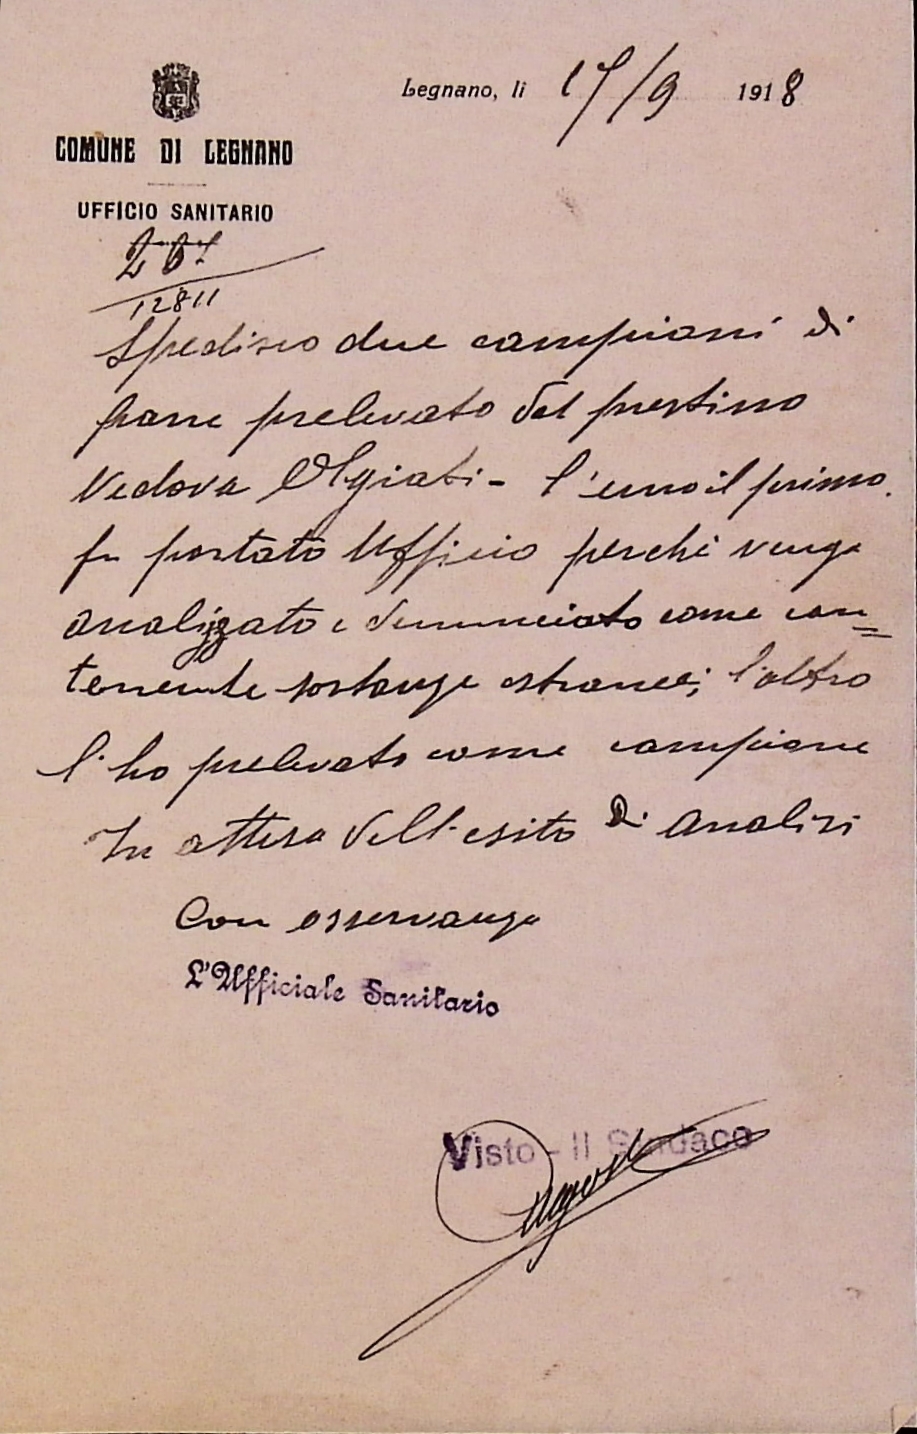 Legnano, li 17/9 1918
COMUNE DI LEGNANO
UFFICIO SANITARIO
12811
Spedisco due campioni di
pane prelevato dal prestino
Vedova Olgiati - l'uno il primo
fu portato Ufficio perchè venga
analizzato e denunciato come con=
tenente sostanze estranee; l'altro
l'ho prelevato come campione
In attesa dell'esito di analisi
Con osservanza
L'Ufficiale Sanitario
Visto - Il Sindaco